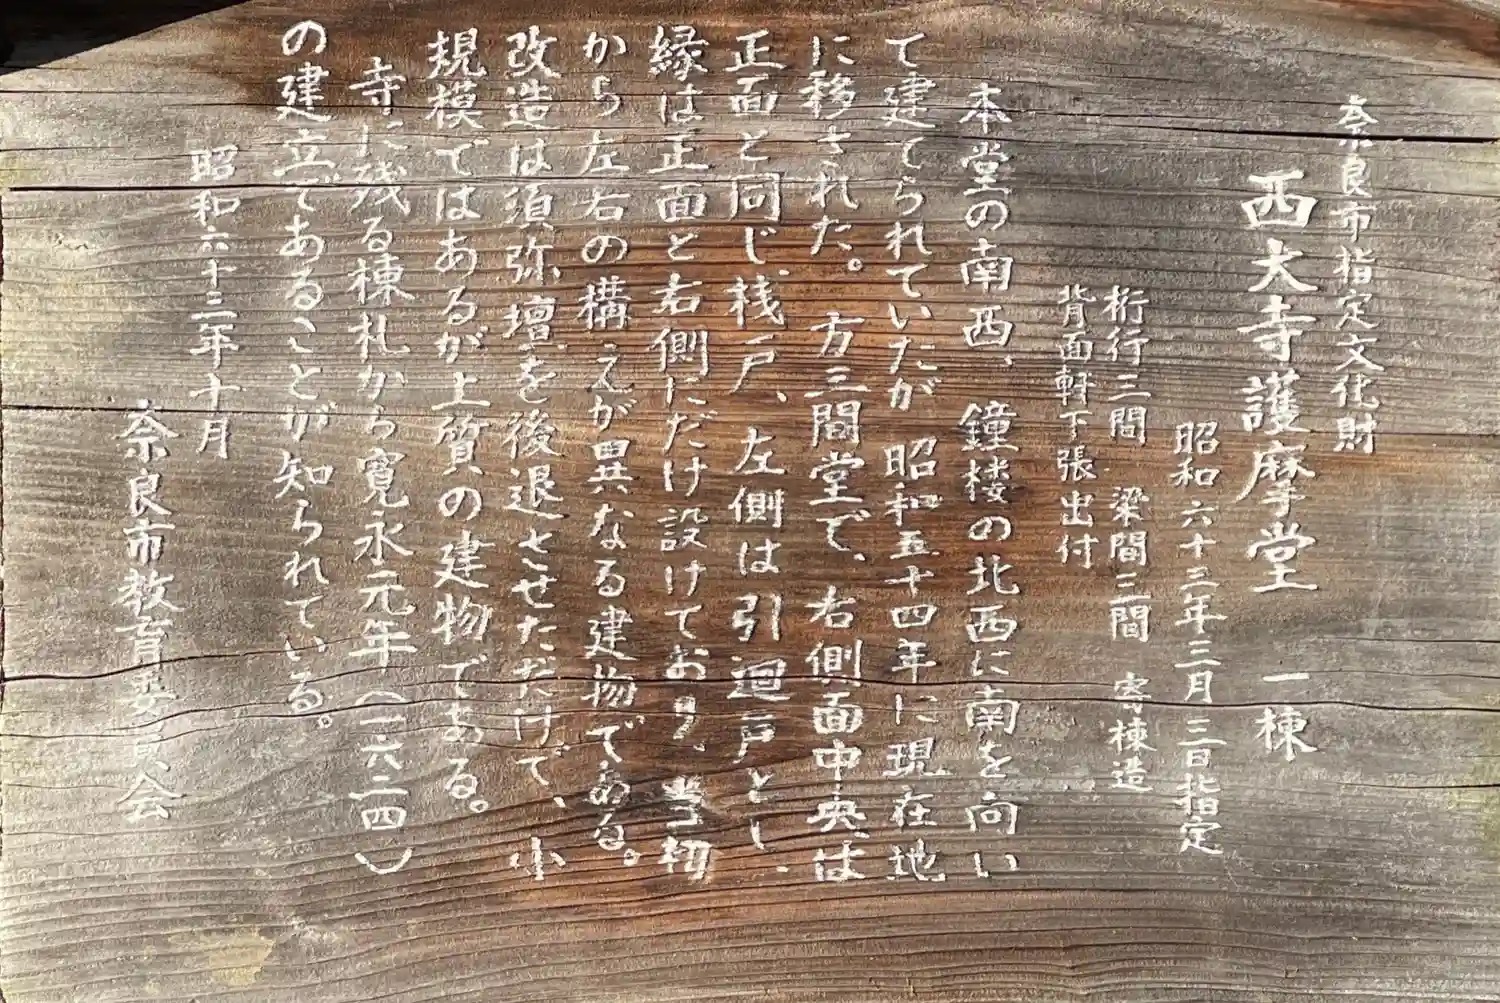 奈良市指定文化財
西大寺護摩堂 一棟
昭和六十三年三月三日指定
桁行三間 梁間三間 寄棟造
背面軒下張出付
本堂の南西、鐘楼の北西に南を向い
て建てられていたが 昭和五十四年に現在地
に移された。方三間堂で、右側面中央は
正面と同じ桟戸、左側は引廻戸とし、
縁は正面と右側にだけ設けており、当初
から左右の構えが異なる建物である。
改造は須弥壇を後退させただけで、小
規模ではあるが上質の建物である。
寺に残る棟札から寛永元年(一六二四)
の建立であることが知られている。
昭和六十三年十月
奈良市教育委員会